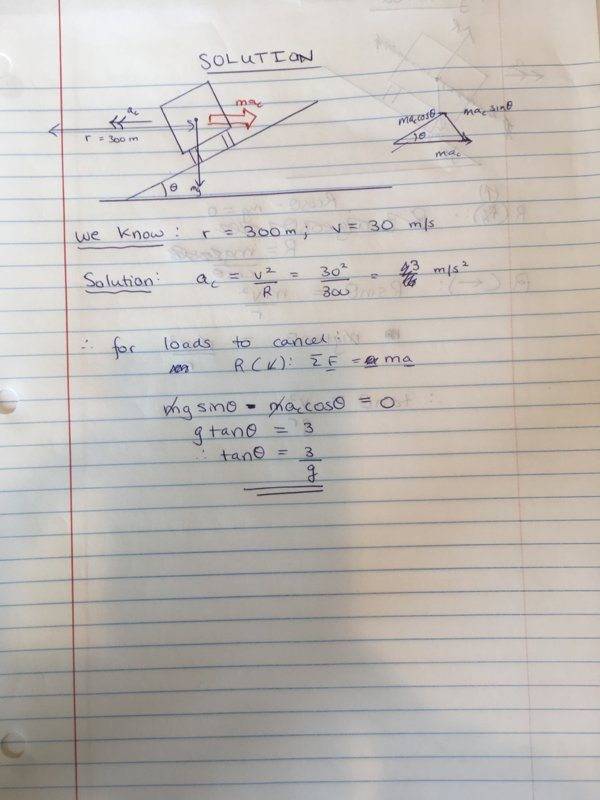 SOLUTION
a_c
r = 300 m
S
ma_c
θ
ma_c cosθ
ma_c sinθ
θ
ma_c
We know: r = 300 m; v = 30 m/s
Solution: a_c = v²/R = 30²/300 = 3 m/s²
∴ for loads to cancel:
R(↙): ΣF = ma
mg sinθ - ma_c cosθ = 0
g tanθ = 3
∴ tanθ = 3/g